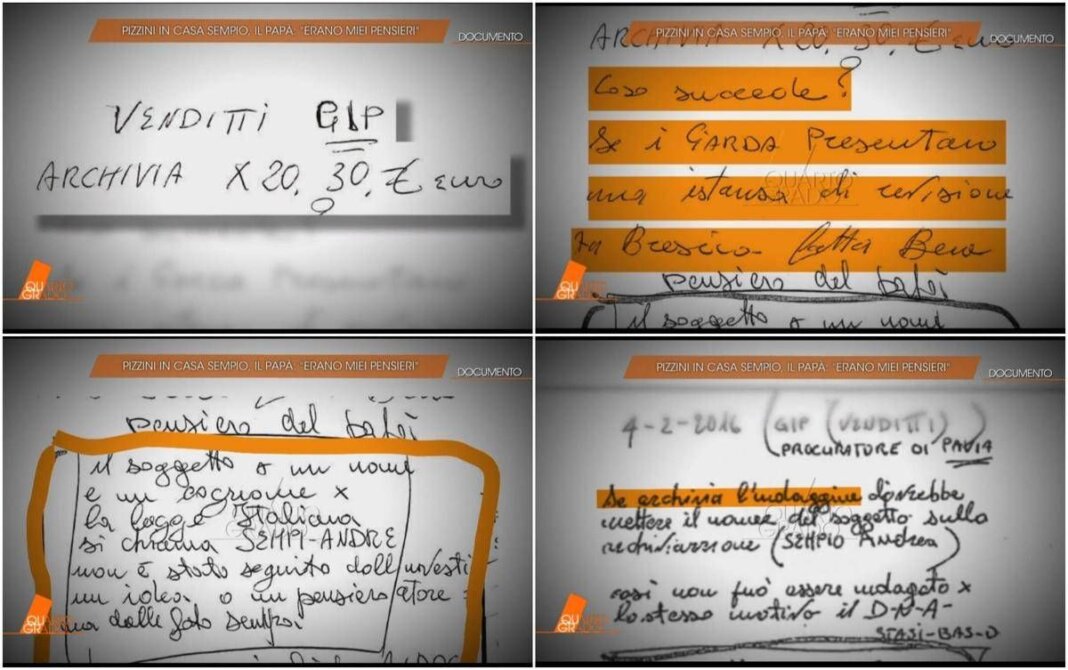 PIZZINI IN CASA SEMPIO, IL PAPÀ: "ERANO MIEI PENSIERI"
DOCUMENTO
VENDITTI GIP
ARCHIVIA X 20, 30, € euro
QUARTO GRADO
PIZZINI IN CASA SEMPIO, IL PAPÀ: "ERANO MIEI PENSIERI"
DOCUMENTO
ARCHIVIA X 20, 30, € euro
Cosa succede?
Se i GARDA Presentano
una istanza di revisione
Brescia fatta Bene
pensiero del
il soggetto a un nome
QUARTO GRADO
QUARTO GRADO
PIZZINI IN CASA SEMPIO, IL PAPÀ: "ERANO MIEI PENSIERI"
DOCUMENTO
pensiero del
il soggetto a un nome
e un cognome x
la legge Italiana
si chiama SEMPI-ANDRE
non è stato seguito dall'investi
un idea o un pensiero atore
QUARTO GRADO
QUARTO GRADO
PIZZINI IN CASA SEMPIO, IL PAPÀ: "ERANO MIEI PENSIERI"
DOCUMENTO
4-2-2016 (GIP (VENDITTI)
PROCURATORE DI PAVIA
Se archivia l'indagine dovrebbe
mettere il nome del soggetto sulla
(SEMPIO Andrea)
cosi non può essere indagato x
lo stesso motivo il D-N-A-
STASI-BAS-O
QUARTO GRADO
QUARTO GRADO